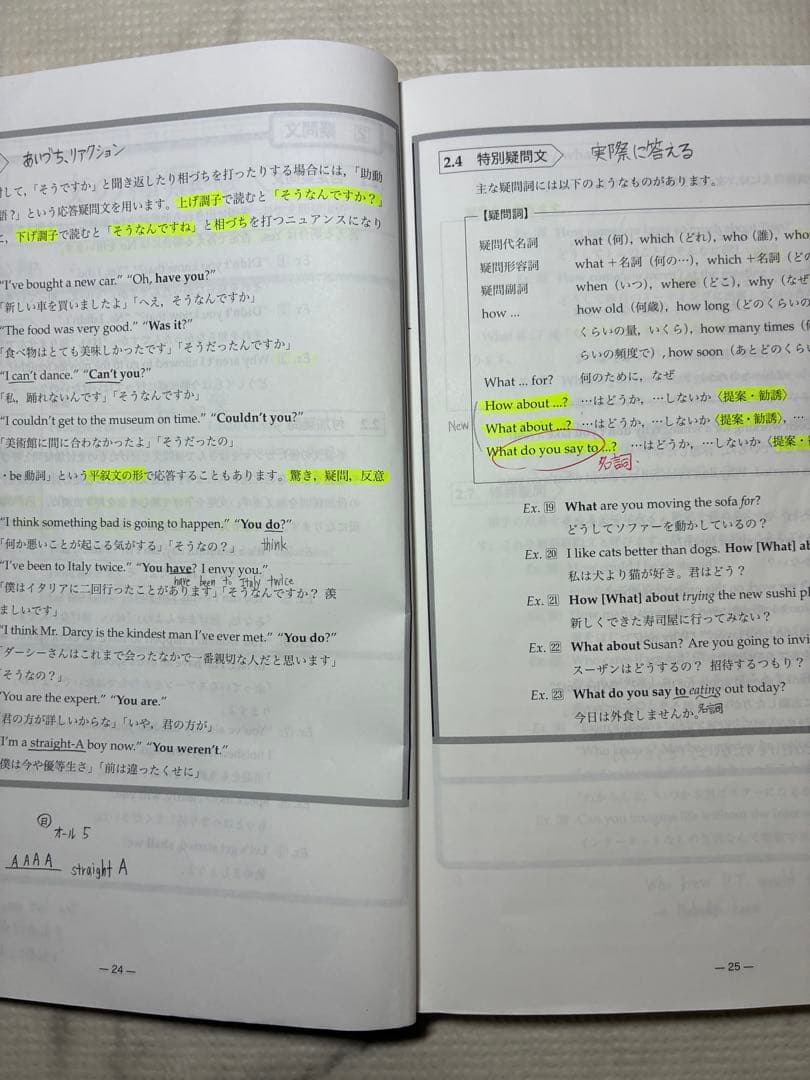 あいづち、リアクション
して，「そうですか」と聞き返したり相づちを打ったりする場合には，「助動
語？」という応答疑問文を用います。上げ調子で読むと「そうなんですか？」
，下げ調子で読むと「そうなんですね」と相づちを打つニュアンスになり
“I’ve bought a new car.” “Oh, have you?”
「新しい車を買いましたよ」「へえ，そうなんですか」
“The food was very good.” “Was it?”
「食べ物はとても美味しかったです」「そうだったんですか」
“I can’t dance.” “Can’t you?”
「私，踊れないんです」「そうなんですか」
“I couldn’t get to the museum on time.” “Couldn’t you?”
「美術館に間に合わなかったよ」「そうだったの」
・be動詞」という平叙文の形で応答することもあります。驚き，疑問，反意
“I think something bad is going to happen.” “You do?”
「何か悪いことが起こる気がする」「そうなの？」 think
“I’ve been to Italy twice.” “You have? I envy you.”
have been to Italy twice
「僕はイタリアに二回行ったことがあります」「そうなんですか？ 羨
ましいです」
“I think Mr. Darcy is the kindest man I’ve ever met.” “You do?”
「ダーシーさんはこれまで会ったなかで一番親切な人だと思います」
「そうなの？」
“You are the expert.” “You are.”
「君の方が詳しいからな」「いや，君の方が」
“I’m a straight-A boy now.” “You weren’t.”
「僕は今や優等生さ」「前は違ったくせに」
日
オール5
AAAA straight A
— 24 —
2.4 特別疑問文 実際に答える
主な疑問詞には以下のようなものがあります。
【疑問詞】
疑問代名詞 what（何），which（どれ），who（誰），who
疑問形容詞 what＋名詞（何の…），which＋名詞（ど
疑問副詞 when（いつ），where（どこ），why（なぜ
how … how old（何歳），how long（どのくらいの
くらいの量，いくら），how many times（何
らいの頻度で），how soon（あとどのくらい
What … for? 何のために，なぜ
How about …? …はどうか，…しないか〈提案・勧誘〉
New
What about …? …はどうか，…しないか〈提案・勧誘〉，
What do you say to …? …はどうか，…しないか〈提案・
名詞.
Ex. 19 What are you moving the sofa for?
どうしてソファーを動かしているの？
Ex. 20 I like cats better than dogs. How [What] ab
私は犬より猫が好き。君はどう？
Ex. 21 How [What] about trying the new sushi pl
新しくできた寿司屋に行ってみない？
Ex. 22 What about Susan? Are you going to invi
スーザンはどうするの？ 招待するつもり？
Ex. 23 What do you say to eating out today?
今日は外食しませんか。 名詞
— 25 —